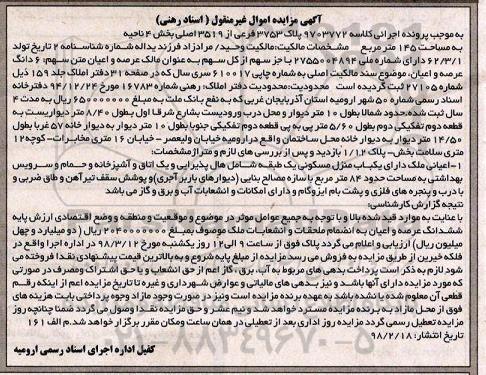 آگهی مزایده اموال غیرمنقول ( اسناد رهنی)
به موجب پرونده اجرائی کلاسه ۹۷۰۳۷۷۲ پلاک ۳۷۵۳ فرعی از ۳۵۱۹ اصلی بخش ۴ ناحیه
به مساحت ۱۴۵ متر مربع مشخصات مالکیت:مالکیت وحید/ مرادزاد فرزند یداله شماره شناسنامه ۲ تاریخ تولد
۶۲/۳/۱ دارای شماره ملی ۲۷۵۵۰۰۴۸۹۴ با جز سهم از کل سهم به عنوان مالک عرصه و اعیان متن سهم: ۶ دانگ
عرصه و اعیان، موضوع سند مالکیت اصلی به شماره چاپی ۶۱۰۰۱۷ سری سال که در صفحه ۳۱ دفتر املاک جلد ۱۵۹ ذیل
شماره ۲۷۱۰۵ ثبت گردیده است محدودیت:محدودیت دفتر املاک: رهنی شماره ۱۶۷۸۳ مورخ ۹۴/۱۲/۲۴ دفترخانه
اسناد رسمی شماره ۵۰ شهر ارومیه استان آذربایجان غربی که به نفع بانک ملت به مبلغ ۶۵۰۰۰۰۰۰۰۰ ریال به مدت ۴
سال ثبت شده حدود: شمالا بطول ۱۰ متر دیوار و محل درب ورودیست بشارع شرقا اول بطول ۸/۴۰ متر دیواریست به
قطعه دوم تفکیکی دوم بطول ۵/۶۰ متر پی به پی قطعه دوم تفکیکی جنوبا بطول ۱۰ متر به دیوار خانه ۵۷ غربا بطول
۱۴/۵۰ متر دیوار به دیوار خانه محل ساختمان واقع در ارومیه خیابان ولیعصر - خیابان ۱۶ متری مخابرات - کوچه ۱۲
متری سلامت بخش- پلاک ۱/۱۲ بازدید و پس از بررسی های لازم و متراژ مشخصات:
۱-اعیانی ملک دارای یکباب منزل مسکونی یک طبقه شامل هال پذیرایی و یک اتاق و آشپزخانه و حمام و سرویس
بهداشتی به مساحت حدود ۸۴ متر مربع با سازه مصالح بنایی (دیوارهای باربر آجری) و پوشش سقف تیرآهن و طاق ضربی و
با درب و پنجره های فلزی و پشت بام ایزوگام و دارای امکانات و انشعابات آب و برق و گاز می باشد
نتیجه گزارش کارشناسی:
با عنایت به موارد قید شده بالا و با توجه به جمیع عوامل موثر در موضوع و موقعیت و منطقه و وضع اقتصادی ارزش پایه
ششدانگ عرصه و اعیان به انضمام ملحقات و انشعابات ملک موصوف بمبلغ ۲۰۴۰۰۰۰۰۰۰ ریال ( دو میلیارد و چهل
میلیون ریال) ارزیابی و اعلام می گردد پلاک فوق از ساعت ۹ الی ۱۲ روز یکشنبه مورخ ۹۸/۳/۱۲ در اداره اجرا واقع در
فلکه خیرین از طریق مزایده به فروش می رسد. مزایده از مبلغ پایه شروع و به بالاترین قیمت پیشنهادی نقدا فروخته می
شود لازم به ذکر است پرداخت بدهی های مربوطه به آب، برق، گاز اعم از حق انشعاب و یا حق اشتراک و مصرف در صورتی
که مورد مزایده دارای آنها باشد و نیز بدهی های مالیاتی و عوارض شهرداری و غیره تا تاریخ مزایده اعم از اینکه رقم
قطعی آن معلوم شده یا نشده باشد به عهده برنده مزایده است و نیز در صورت وجود مازاد وجوه پرداختی بابت هزینه های
فوق از محل مازاد به برنده مزایده مسترد خواهد شد و نیم عشر و حق مزایده نقدا وصول می گردد ضمنا چنانچه روز
مزایده تعطیل رسمی گردد مزایده روز اداری بعد از تعطیلی در همان ساعت ومکان مقرر برگزار خواهد شد. م الف ۱۶۱
تاریخ انتشار: ۹۸/۲/۱۸
کفیل اداره اجرای اسناد رسمی ارومیه
۰۲۱-۸۸۳۴۹۶۷۰-۵